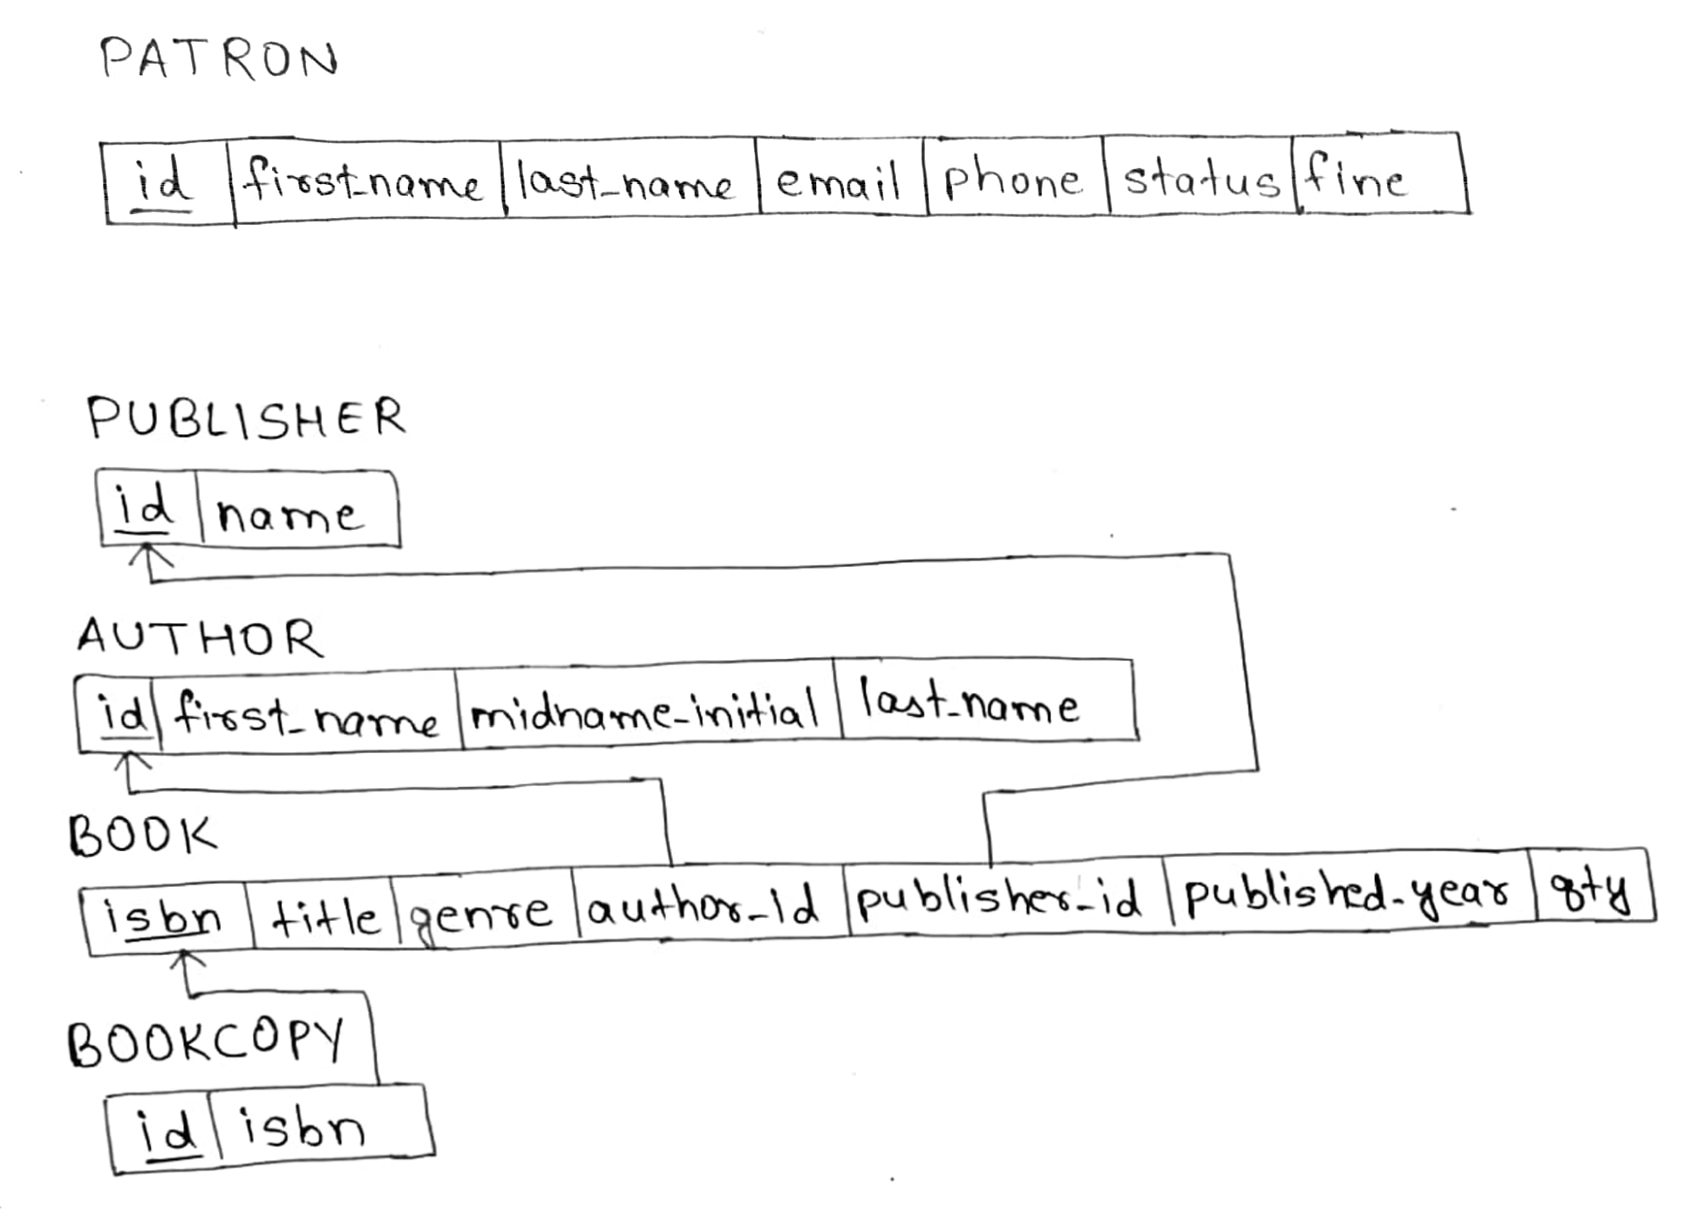 PATRON
id first_name last_name email phone status fine
PUBLISHER
id name
AUTHOR
id first_name midname_initial last_name
BOOK
isbn title genre author_id publisher_id published_year qty
BOOKCOPY
id isbn